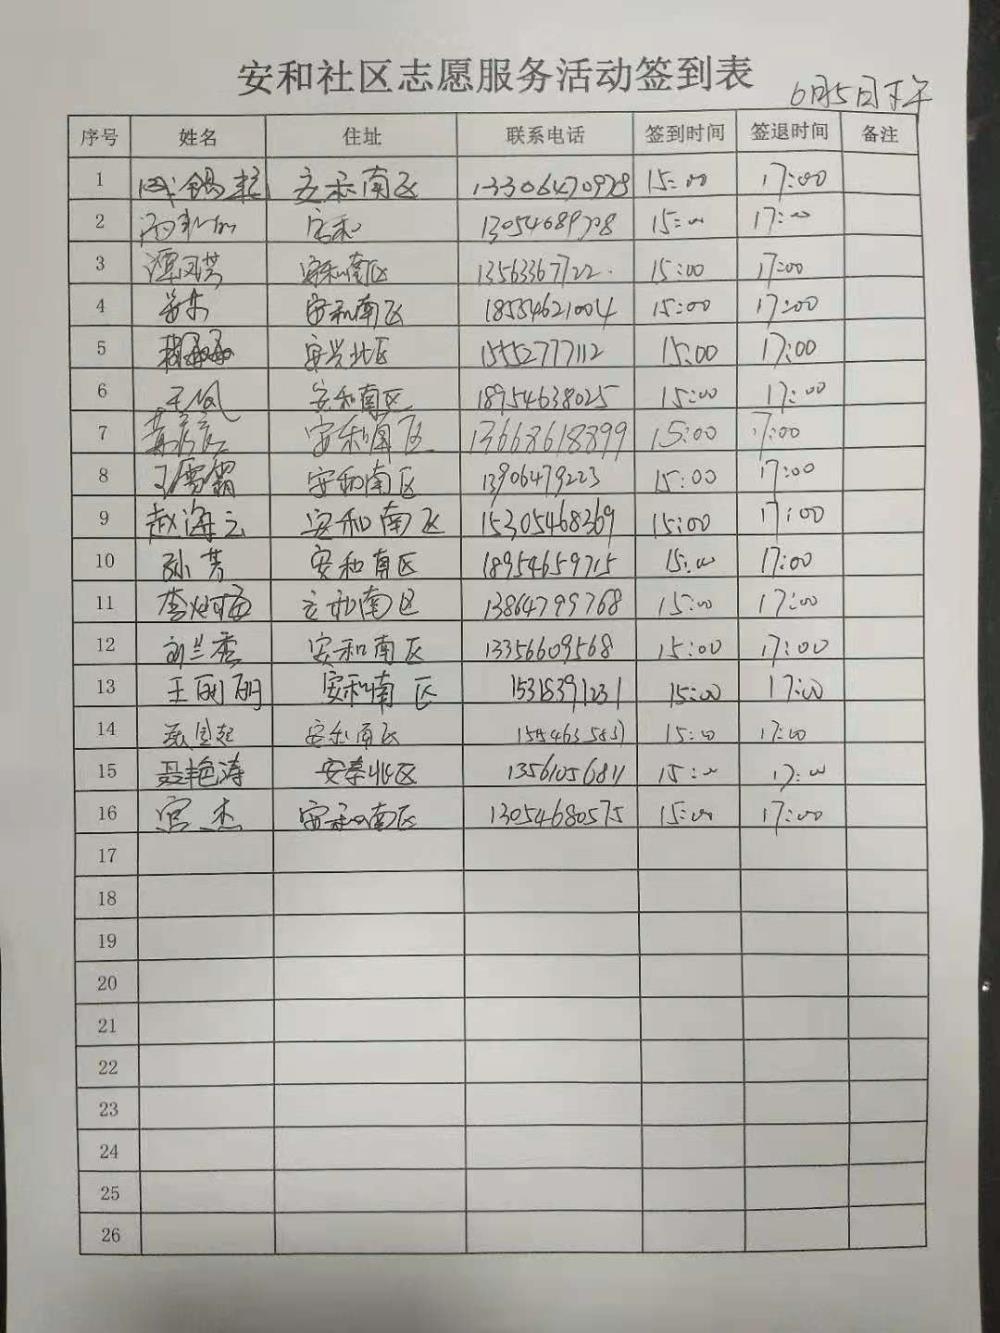 安和社区志愿服务活动签到表
6月5日下午
序号 姓名 住址 联系电话 签到时间 签退时间 备注
1 安和南区 13306470979 15:00 17:00
2 安和 15:00 17:00
3 谭凤芳 安和南区 13563367722 15:00 17:00
4 安和南区 18554621004 15:00 17:00
5 安兴北区 15552777112 15:00 17:00
6 王凤 安和南区 18954638025 15:00 17:00
7 安和南区 13668618899 15:00 17:00
8 安和南区 13906479223 15:00 17:00
9 赵海云 安和南区 15305468369 15:00 17:00
10 孙芳 安和南区 18954659715 15:00 17:00
11 安和南区 13864799768 15:00 17:00
12 刘兰香 安和南区 13356609568 15:00 17:00
13 王丽丽 安和南区 15318391231 15:00 17:00
14 安和南区 15:00 17:00
15 聂艳涛 安泰北区 13561056811 15:00 17:00
16 宫杰 安和南区 13054680575 15:00 17:00
17
18
19
20
21
22
23
24
25
26